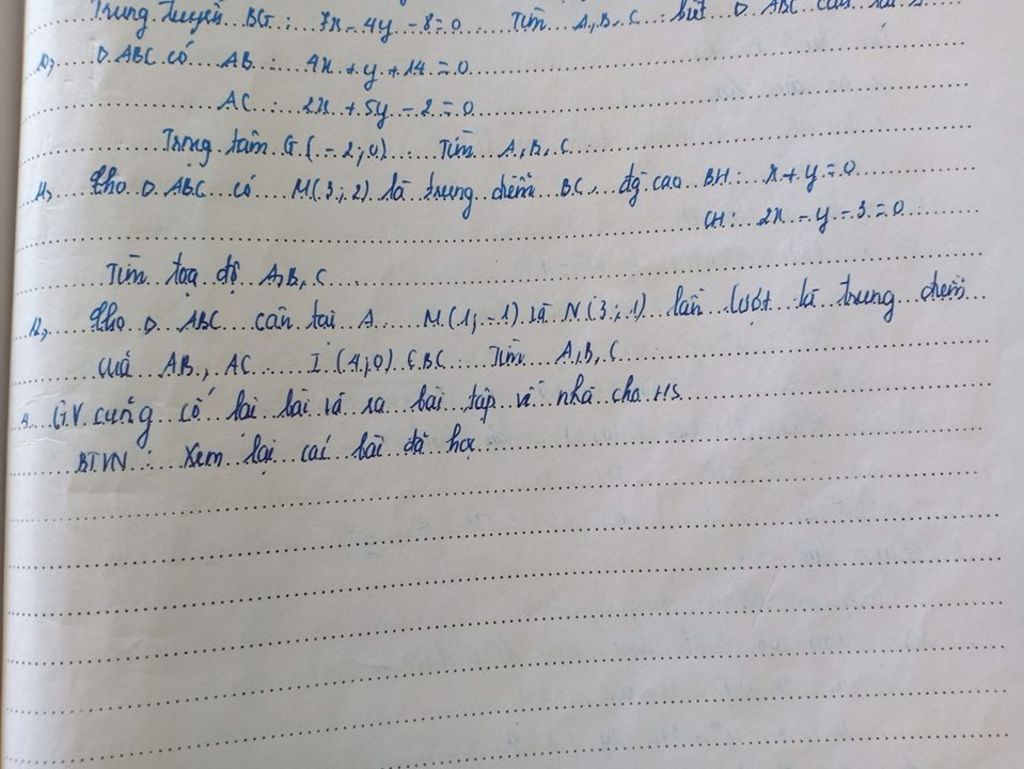 Trung tuyến BG: 7x - 4y - 8 = 0 Tìm A, B, C biết Δ ABC cân tại
10, Δ ABC có AB: 4x + y + 14 = 0
AC: 2x + 5y - 2 = 0
Trọng tâm G(-2; 0) Tìm A, B, C
11, Cho Δ ABC có M(3; 2) là trung điểm BC, đg cao BH: x + y = 0
CH: 2x - y - 3 = 0
Tìm tọa độ A, B, C
12, Cho Δ ABC cân tại A M(1; -1) và N(3; 1) lần lượt là trung điểm
của AB, AC I(4; 0) ∈ BC Tìm A, B, C
4. GV củng cố lại bài và ra bài tập về nhà cho HS
BTVN: Xem lại các bài đã học